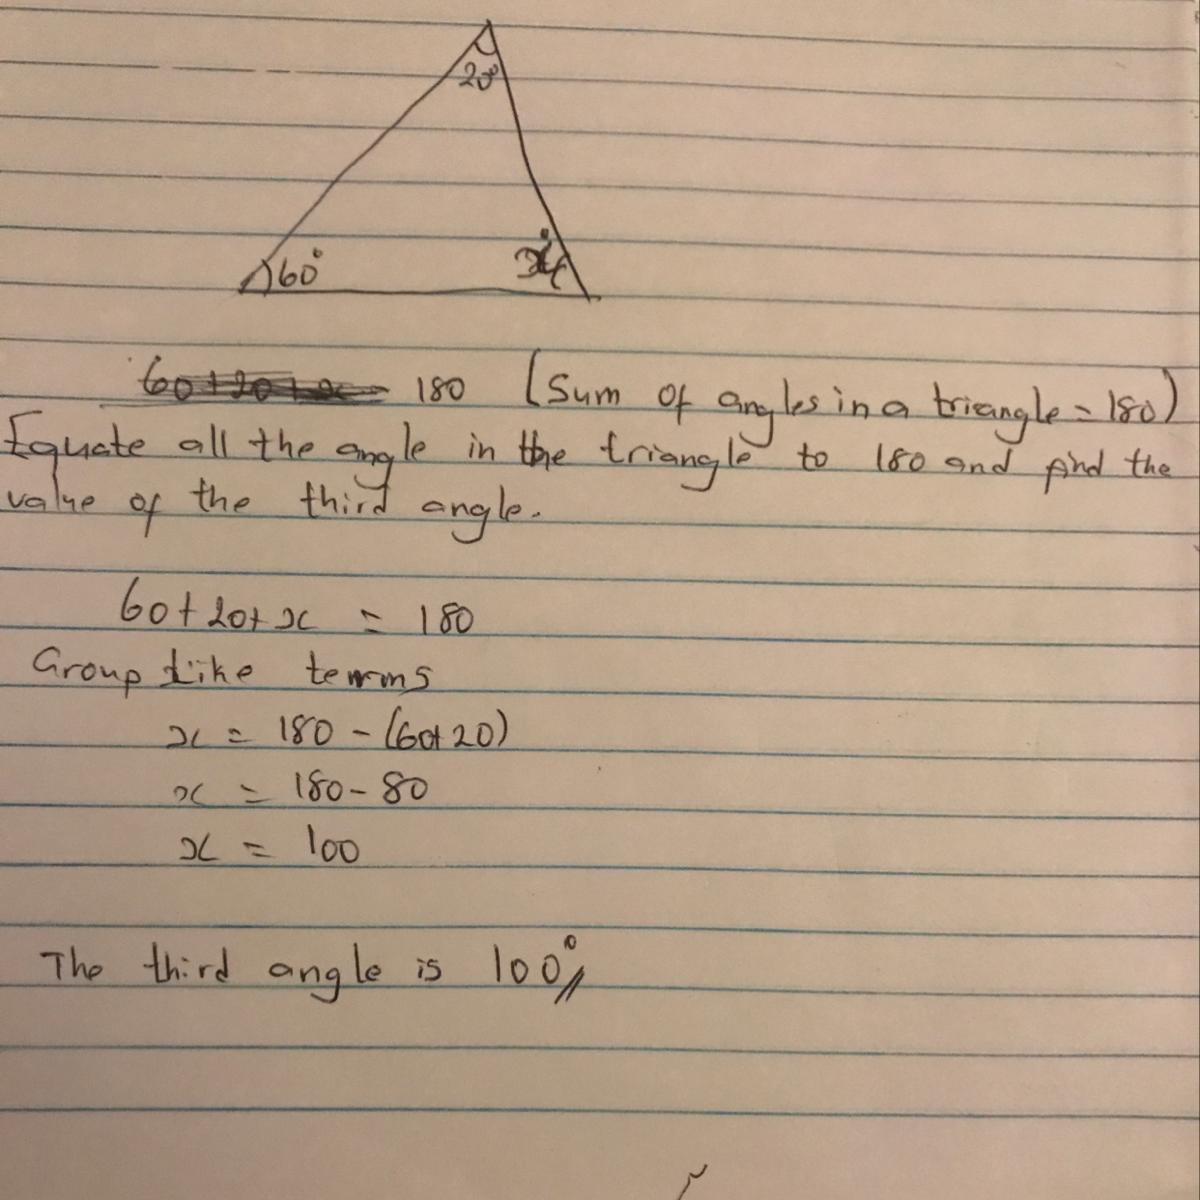 20°
60°
x°
60+20+x 180 (Sum of angles in a triangle = 180)
Equate all the angle in the triangle to 180 and find the
value of the third angle.
60+20+x = 180
Group like terms
x = 180 - (60+20)
x = 180 - 80
x = 100
The third angle is 100°//